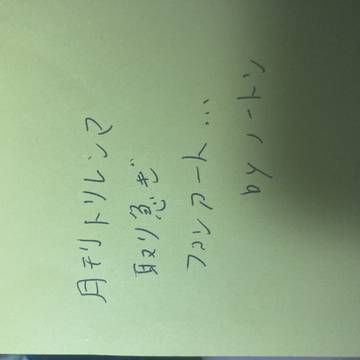 月刊トリレンマ
取り急ぎ
ファンアート...
by ノートン